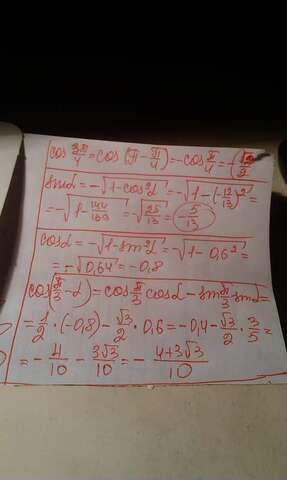 cos 3π/4 = cos (π - π/4) = -cos π/4 = -(√2/2)
sinα = -√(1-cos²α) = -√(1-(-12/13)²) =
= -√(1-144/169) = -√(25/169) = -5/13
cosα = -√(1-sin²α) = -√(1-0,6²) =
= -√0,64 = -0,8
cos(π/3 - α) = cos π/3 cosα - sin π/3 sinα =
= 1/2 · (-0,8) - √3/2 · 0,6 = -0,4 - √3/2 · 3/5 =
= -4/10 - 3√3/10 = - (4+3√3)/10